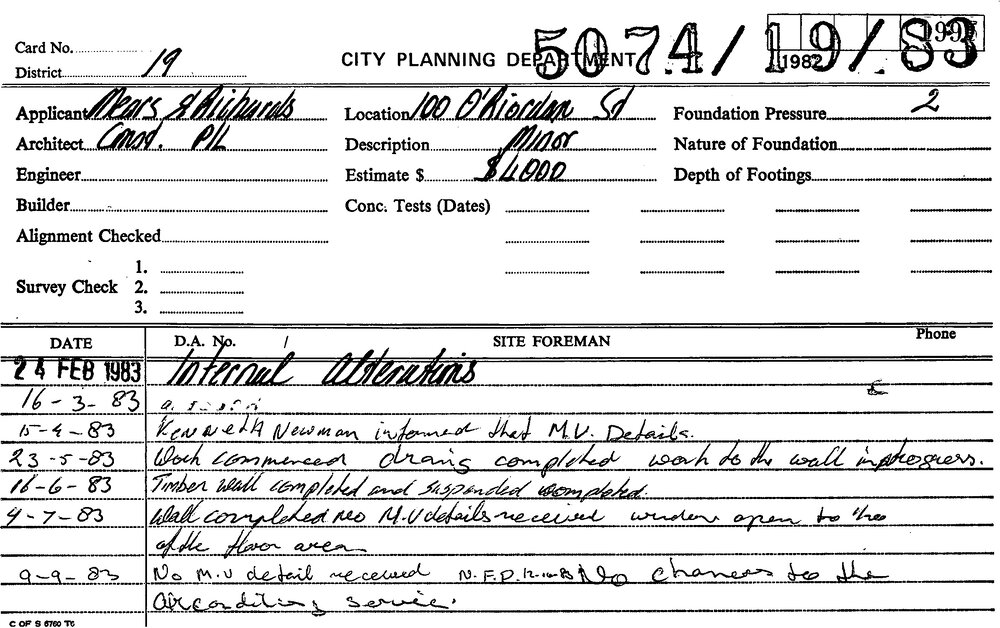 Card No.
District 19
CITY PLANNING DEPARTMENT
5074/19/83
1982
Applicant Mears & Richards
Location 100 O'Riordan St
Foundation Pressure 2
Architect Const. P/L
Description Minor
Nature of Foundation
Engineer
Estimate $ $4000
Depth of Footings
Builder
Conc. Tests (Dates)
Alignment Checked
Survey Check 1.
2.
3.
DATE D.A. No. / SITE FOREMAN Phone
24 FEB 1983 Internal Alterations
16-3-83
15-4-83 Kenneth Newman informed that M.V. Details.
23-5-83 Work commenced drains completed work to the wall in progress.
16-6-83 Timber wall completed and suspended completed.
4-7-83 Wall completed no M.V details received window open to the
of the floor area
9-9-83 No M.V detail received N.F.P. 12-10-83 No changes to the
airconditing service.
C OF S 6760 T6